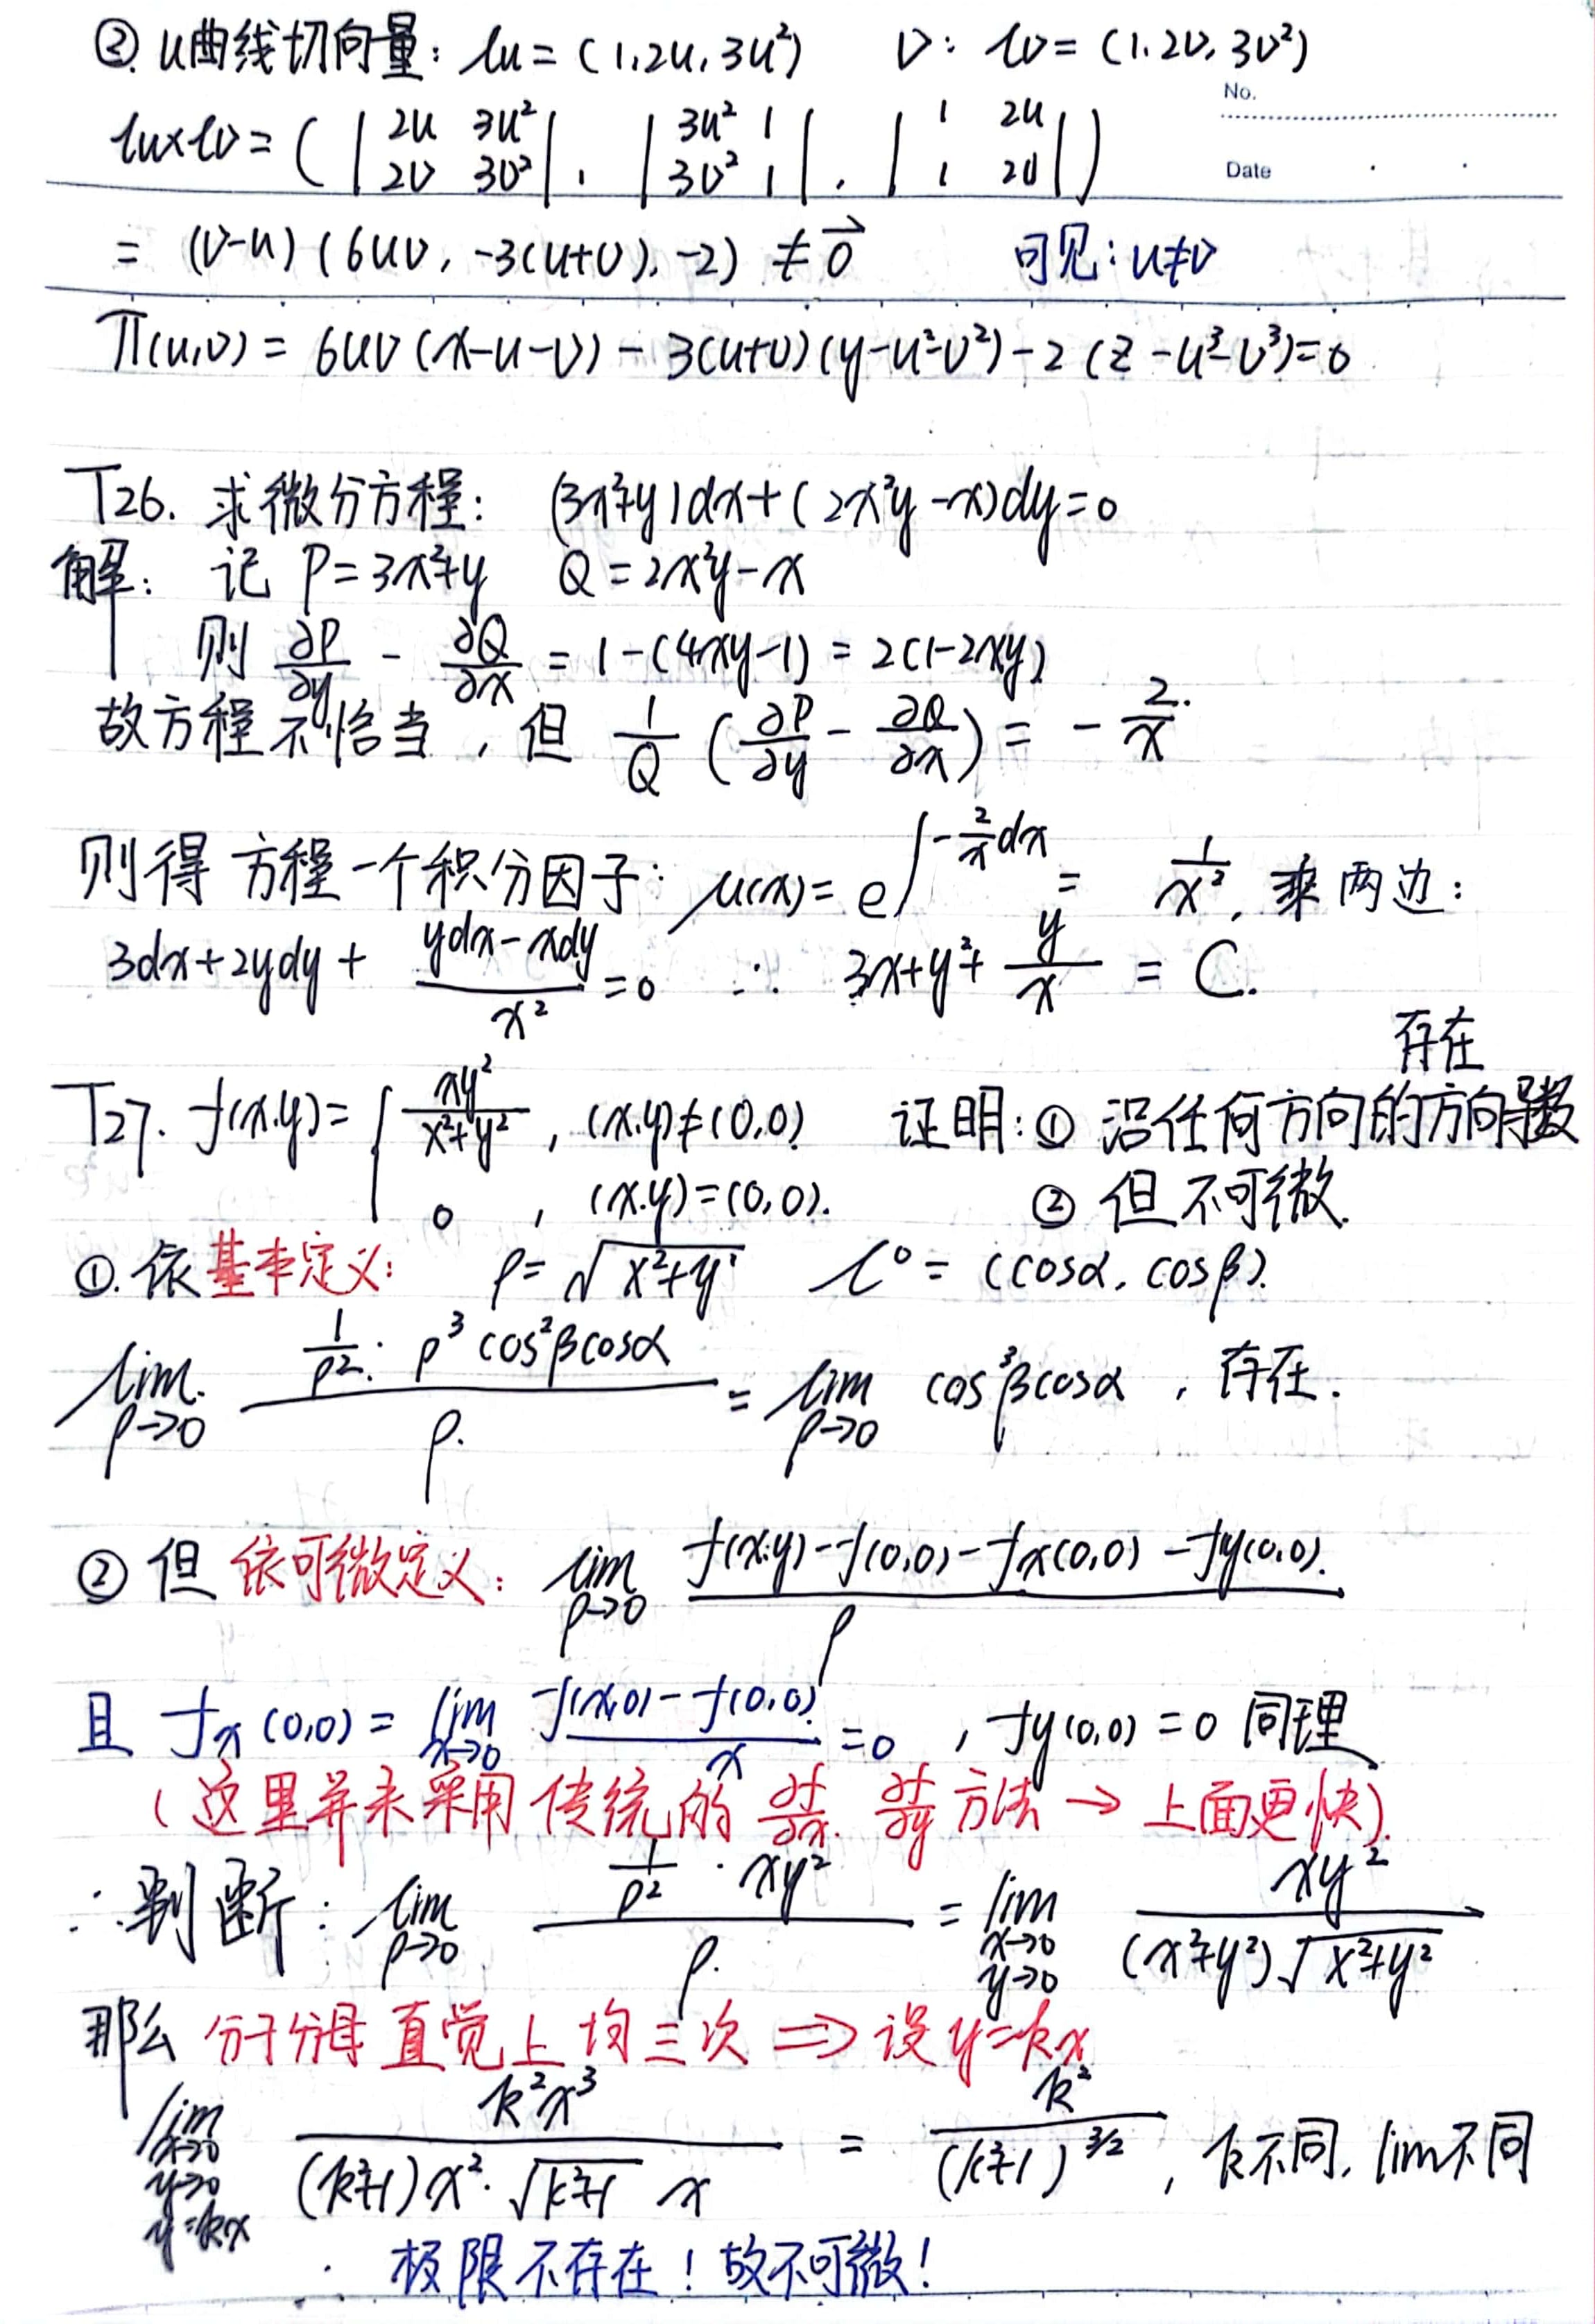 ②. u曲线切向量: lu = (1, 2u, 3u²)  v: lv = (1, 2v, 3v²)
No.
lu×lv = ( | 2u 3u² ; 2v 3v² |, | 3u² 1 ; 3v² 1 |, | 1 2u ; 1 2v | )
Date
= (v-u) (6uv, -3(u+v), -2) ≠ 0⃗  可见: u≠v
π(u,v) = 6uv(x-u-v) - 3(u+v)(y-u²-v²) - 2(z-u³-v³) = 0
T26. 求微分方程: (3x²+y)dx + (2x²y-x)dy = 0
解: 记 P = 3x²+y  Q = 2x²y-x
则 ∂P/∂y - ∂Q/∂x = 1-(4xy-1) = 2(1-2xy)
故方程不恰当, 但 1/Q (∂P/∂y - ∂Q/∂x) = -2/x.
则得方程一个积分因子: μ(x) = e^∫-2/x dx = 1/x², 乘两边:
3dx + 2ydy + (ydx-xdy)/x² = 0  ∴ 3x+y²+ y/x = C.
存在
T27. f(x,y) = { xy²/(x²+y²), (x,y)≠(0,0)  证明: ① 沿任何方向的方向导数
0, (x,y)=(0,0).  ② 但不可微.
①. 依基本定义: ρ = √(x²+y²)  l° = (cosα, cosβ).
lim ρ→0 (1/ρ² · ρ³cos²βcosα)/ρ. = lim ρ→0 cos³βcosα, 存在.
② 但依可微定义: lim ρ→0 (f(x,y)-f(0,0)-fx(0,0)-fy(0,0).)/ρ
且 fx(0,0) = lim x→0 (f(x,0)-f(0,0))/x = 0, fy(0,0) = 0 同理
(这里并未采用传统的 ∂f/∂x. ∂f/∂y 方法 → 上面更快).
∴判断: lim ρ→0 (1/ρ² · xy²)/ρ. = lim x→0 y→0 xy²/((x²+y²)√(x²+y²))
那么 分子分母直觉上均三次 ⇒ 设 y=kx
lim x→0 y→0 y=kx k²x³/((k²+1)x²·√(k²+1) x) = k²/(k²+1)^3/2, k不同, lim不同
∴ 极限不存在! 故不可微!